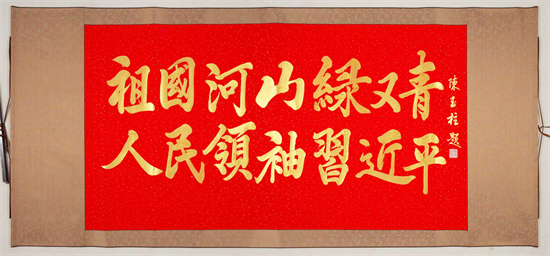 祖國河山緑又青
人民領袖習近平
陳玉柱題